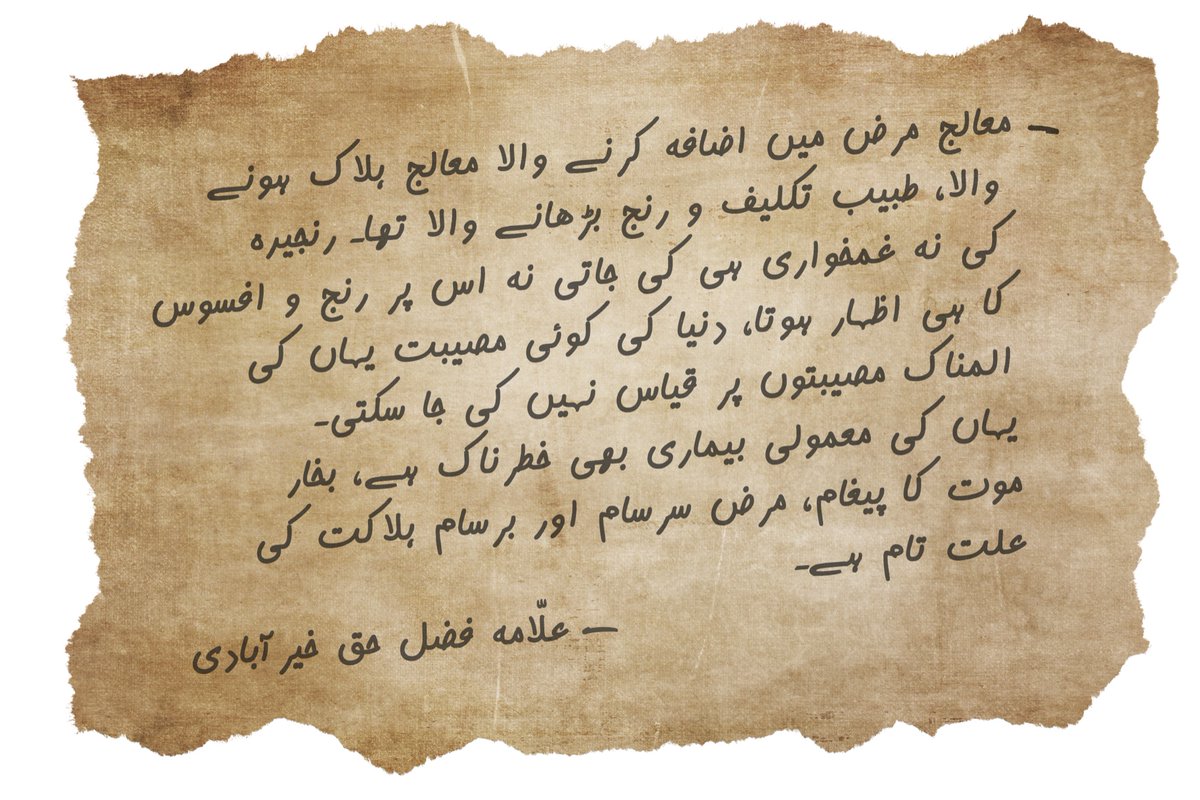 — معالج مرض میں اضافہ کرنے والا معالج ہلاک ہونے
والا، طبیب تکلیف و رنج بڑھانے والا تھا۔ رنجیرہ
کی نہ غمخواری ہی کی جاتی نہ اس پر رنج و افسوس
کا ہی اظہار ہوتا، دنیا کی کوئی مصیبت یہاں کی
المناک مصیبتوں پر قیاس نہیں کی جا سکتی۔
یہاں کی معمولی بیماری بھی خطرناک ہے، بخار
موت کا پیغام، مرض سرسام اور برسام ہلاکت کی
علت تام ہے۔
— علّامہ فضل حق خیر آبادی